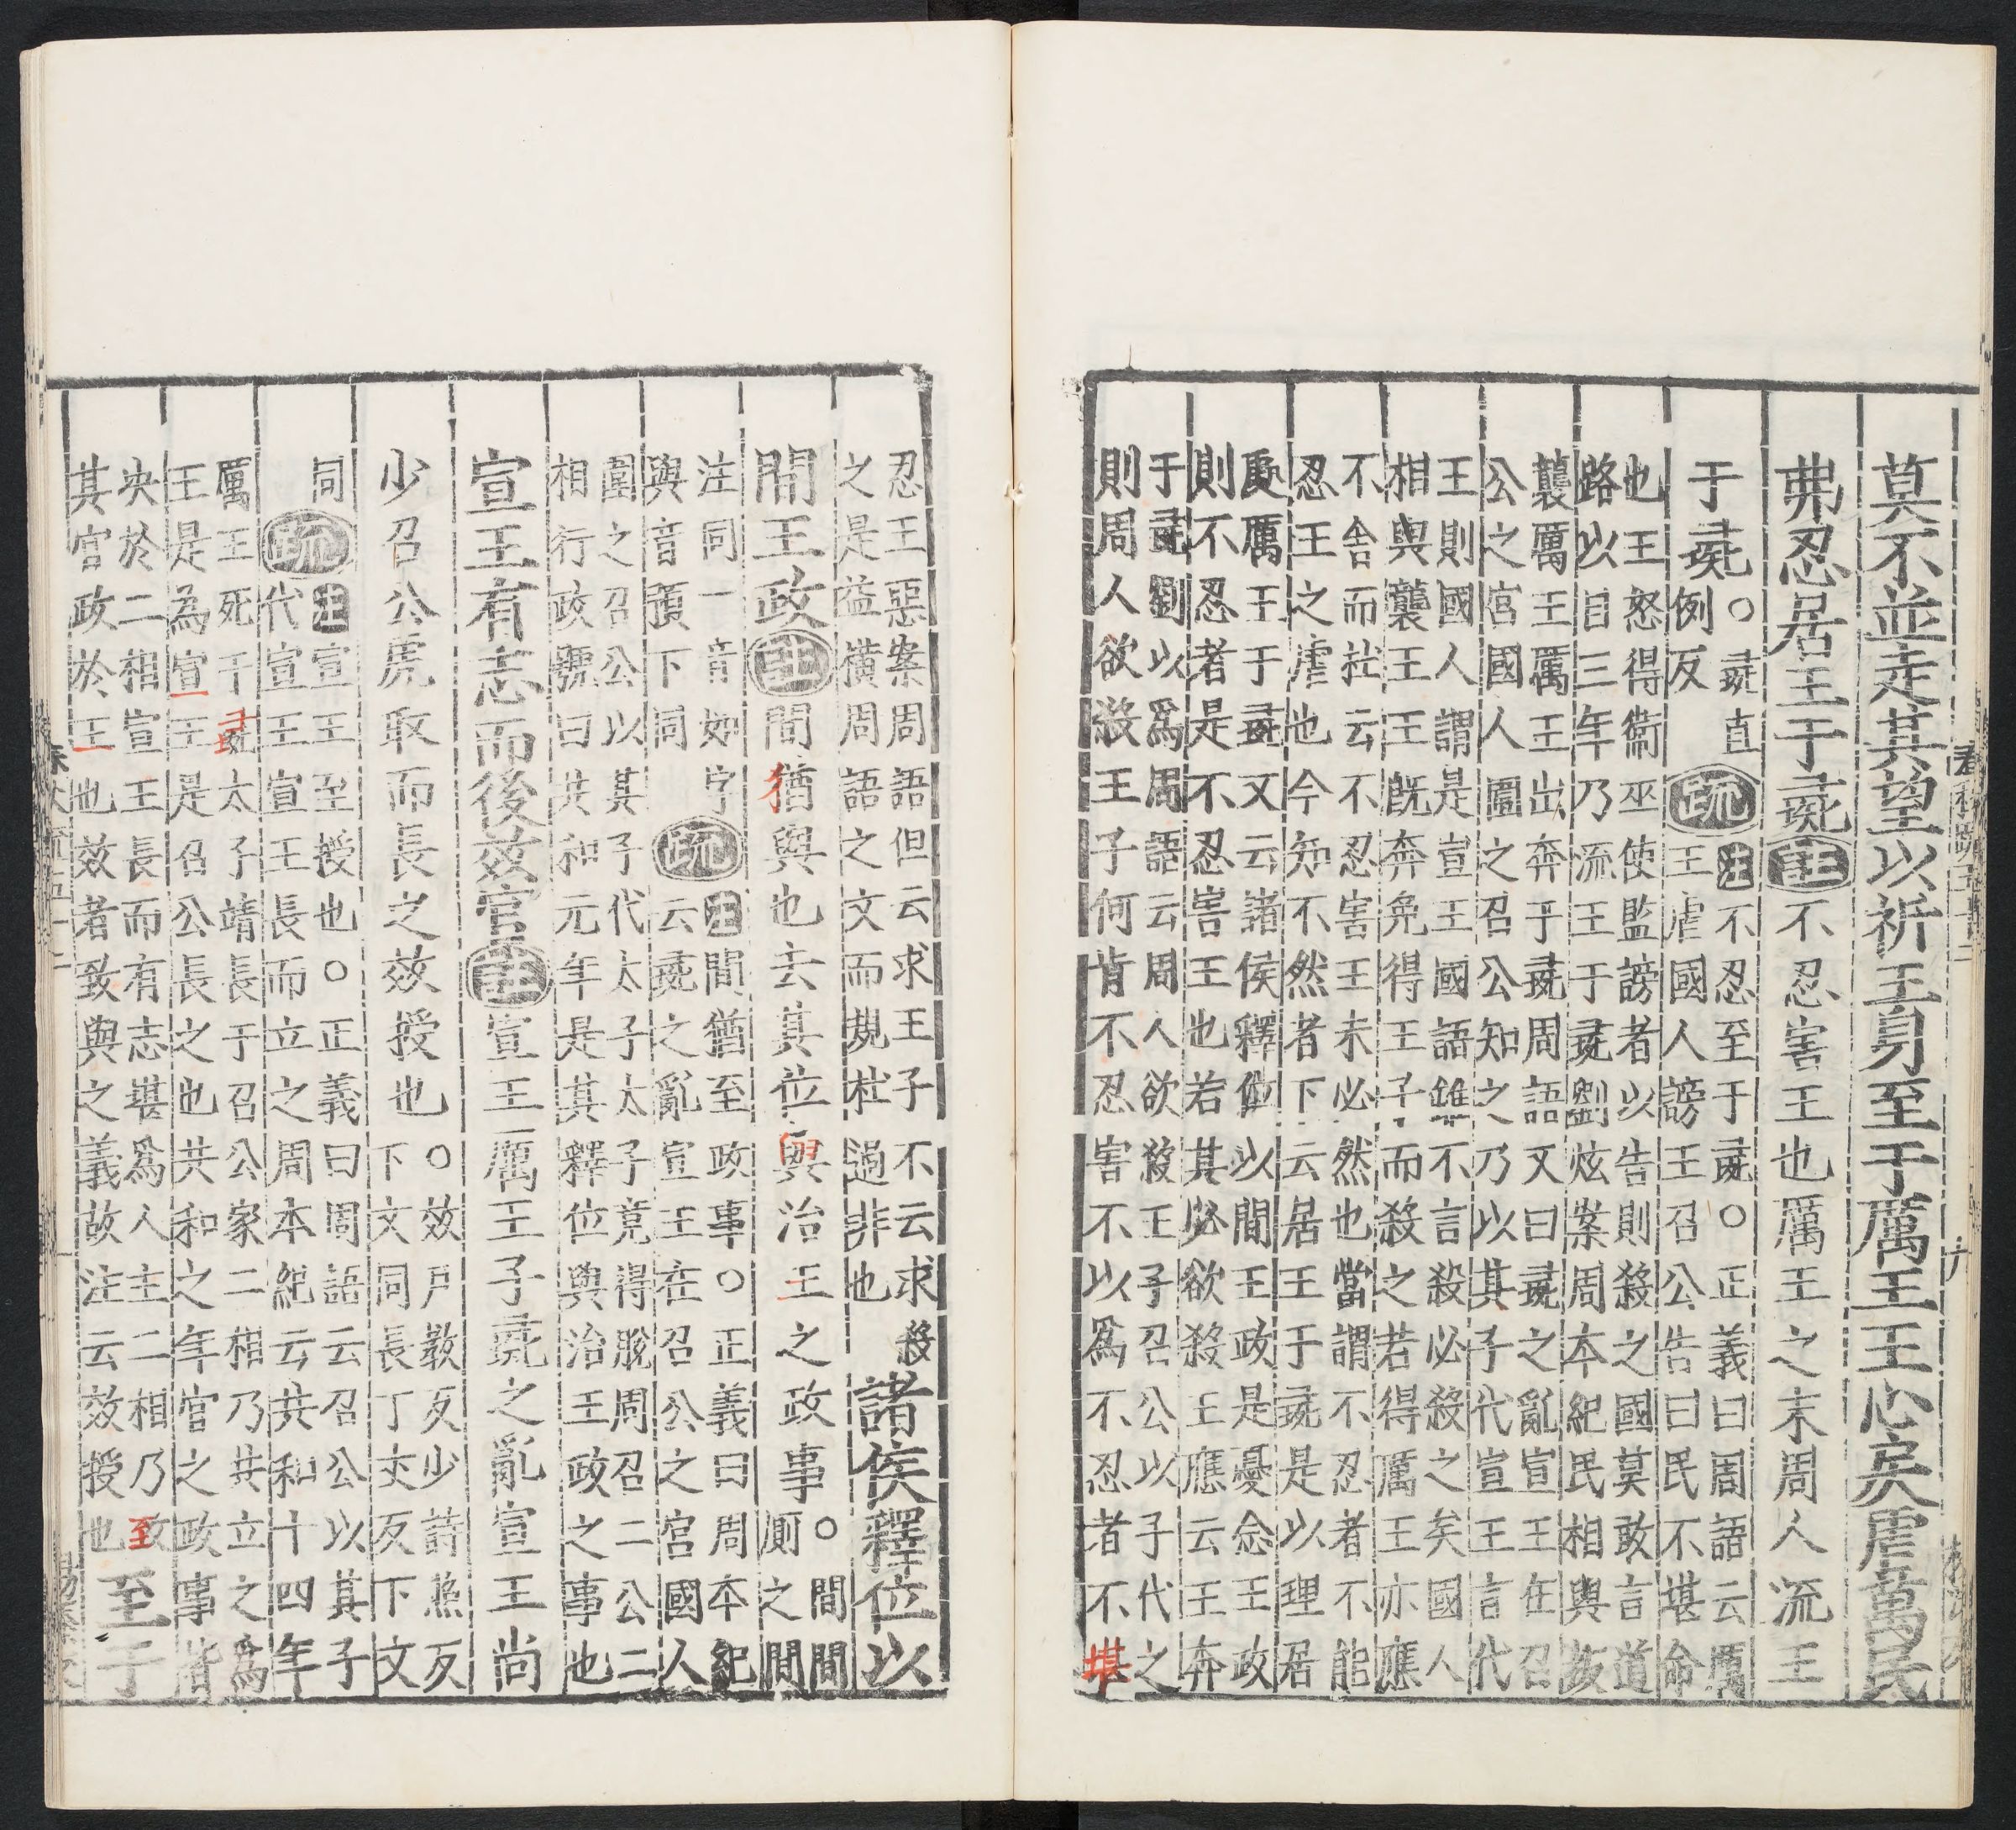 莫不並走其望以祈王身至于厲王王心戾虐萬民
弗忍居王于彘註不忍害王也厲王之末周人流王
于彘○彘直
例反
疏註不忍至于彘○正義曰周語云厲
王虐國人謗王召公告曰民不堪命
也王怒得衞巫使監謗者以告則殺之國莫敢言道
路以目三年乃流王于彘劉炫案周本紀民相與叛
襲厲王厲王出奔于彘周語又曰彘之亂宣王在召
公之宮國人圍之召公知之乃以其子代宣王言代
王則國人謂是宣王國語雖不言殺必殺之矣國人
相與襲王王旣奔免得王子而殺之若得厲王亦應
不舍而杜云不忍害王未必然也當謂不忍者不能
忍王之虐也今知不然者下云居王于彘是以理居
處厲王于彘又云諸侯釋位以間王政是憂念王政
則不忍者是不忍害王也若其必欲殺王應云王奔
于彘劉以爲周語云周人欲殺王子召公以子代之
則周人欲殺王子何肯不忍害不以爲不忍者不堪
忍王惡案周語但云求王子不云求殺
之是益橫周語之文而規杜過非也
諸侯釋位以
間王政註間猶與也去其位與治王之政事○間間
厠之間
注同一音如字
與音預下同
疏註間猶至政事○正義曰周本紀
云彘之亂宣王在召公之宮國人
圍之召公以其子代太子太子竟得脫周召二公二
相行政號曰共和元年是其釋位與治王政之事也
宣王有志而後效官註宣王厲王子彘之亂宣王尚
少召公虎取而長之效授也○效戶教反少詩照反
下文同長丁丈反下文
同疏註宣王至授也○正義曰周語云召公以其子
代宣王宣王長而立之周本紀云共和十四年
厲王死于彘太子靖長于召公家二相乃共立之爲
王是為宣王是召公長之也共和之年官之政事皆
決於二相宣王長而有志堪爲人主二相乃致
其官政於王也效者致與之義故注云效授也
至于